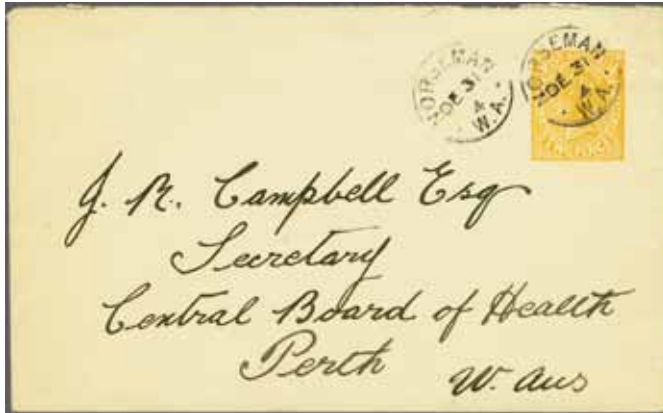 NORSEMAN
DE 31
4
W.A.
NORSEMAN
DE 31
4
W.A.
J. R. Campbell Esq
Secretary
Central Board of Health
Perth
W. Aus